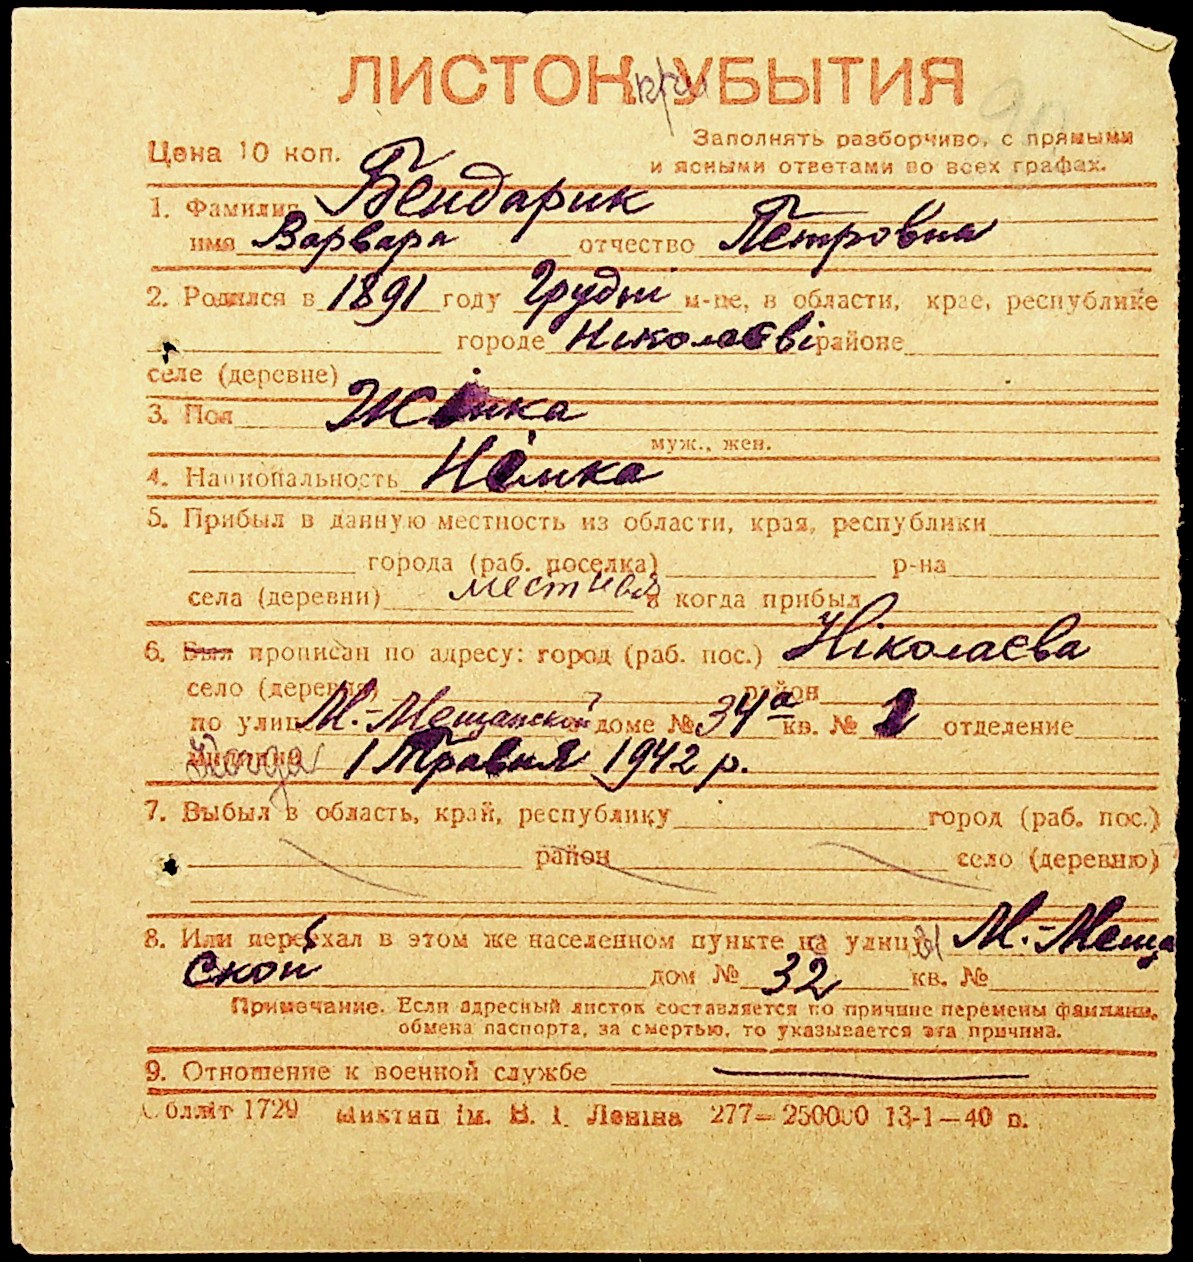 ЛИСТОК УБЫТИЯ
при
90
Цена 10 коп.
Заполнять разборчиво, с прямыми
и ясными ответами во всех графах.
1. Фамилия Бендарик
имя Варвара отчество Петровна
2. Родился в 1891 году Грудні м-це, в области, крае, республике
городе Ніколаєві районе
селе (деревне)
3. Пол Жінка
муж., жен.
4. Национальность Німка
5. Прибыл в данную местность из области, края, республики
города (раб. поселка) р-на
села (деревни) местная и когда прибыл
6. Был прописан по адресу: город (раб. пос.) Ніколаєва
село (деревня) район
по улице М.-Мещанской доме № 34а кв. № 1 отделение
милиции Когда 1 Травня 1942 р.
7. Выбыл в область, край, республику город (раб. пос.)
район село (деревню)
8. Или переехал в этом же населенном пункте на улицу М.-Меща
ской дом № 32 кв. №
Примечание. Если адресный листок составляется по причине перемены фамилии,
обмена паспорта, за смертью, то указывается эта причина.
9. Отношение к военной службе
Обллит 1729 Миктип ім. В. І. Леніна 277—250000 13-1—40 р.